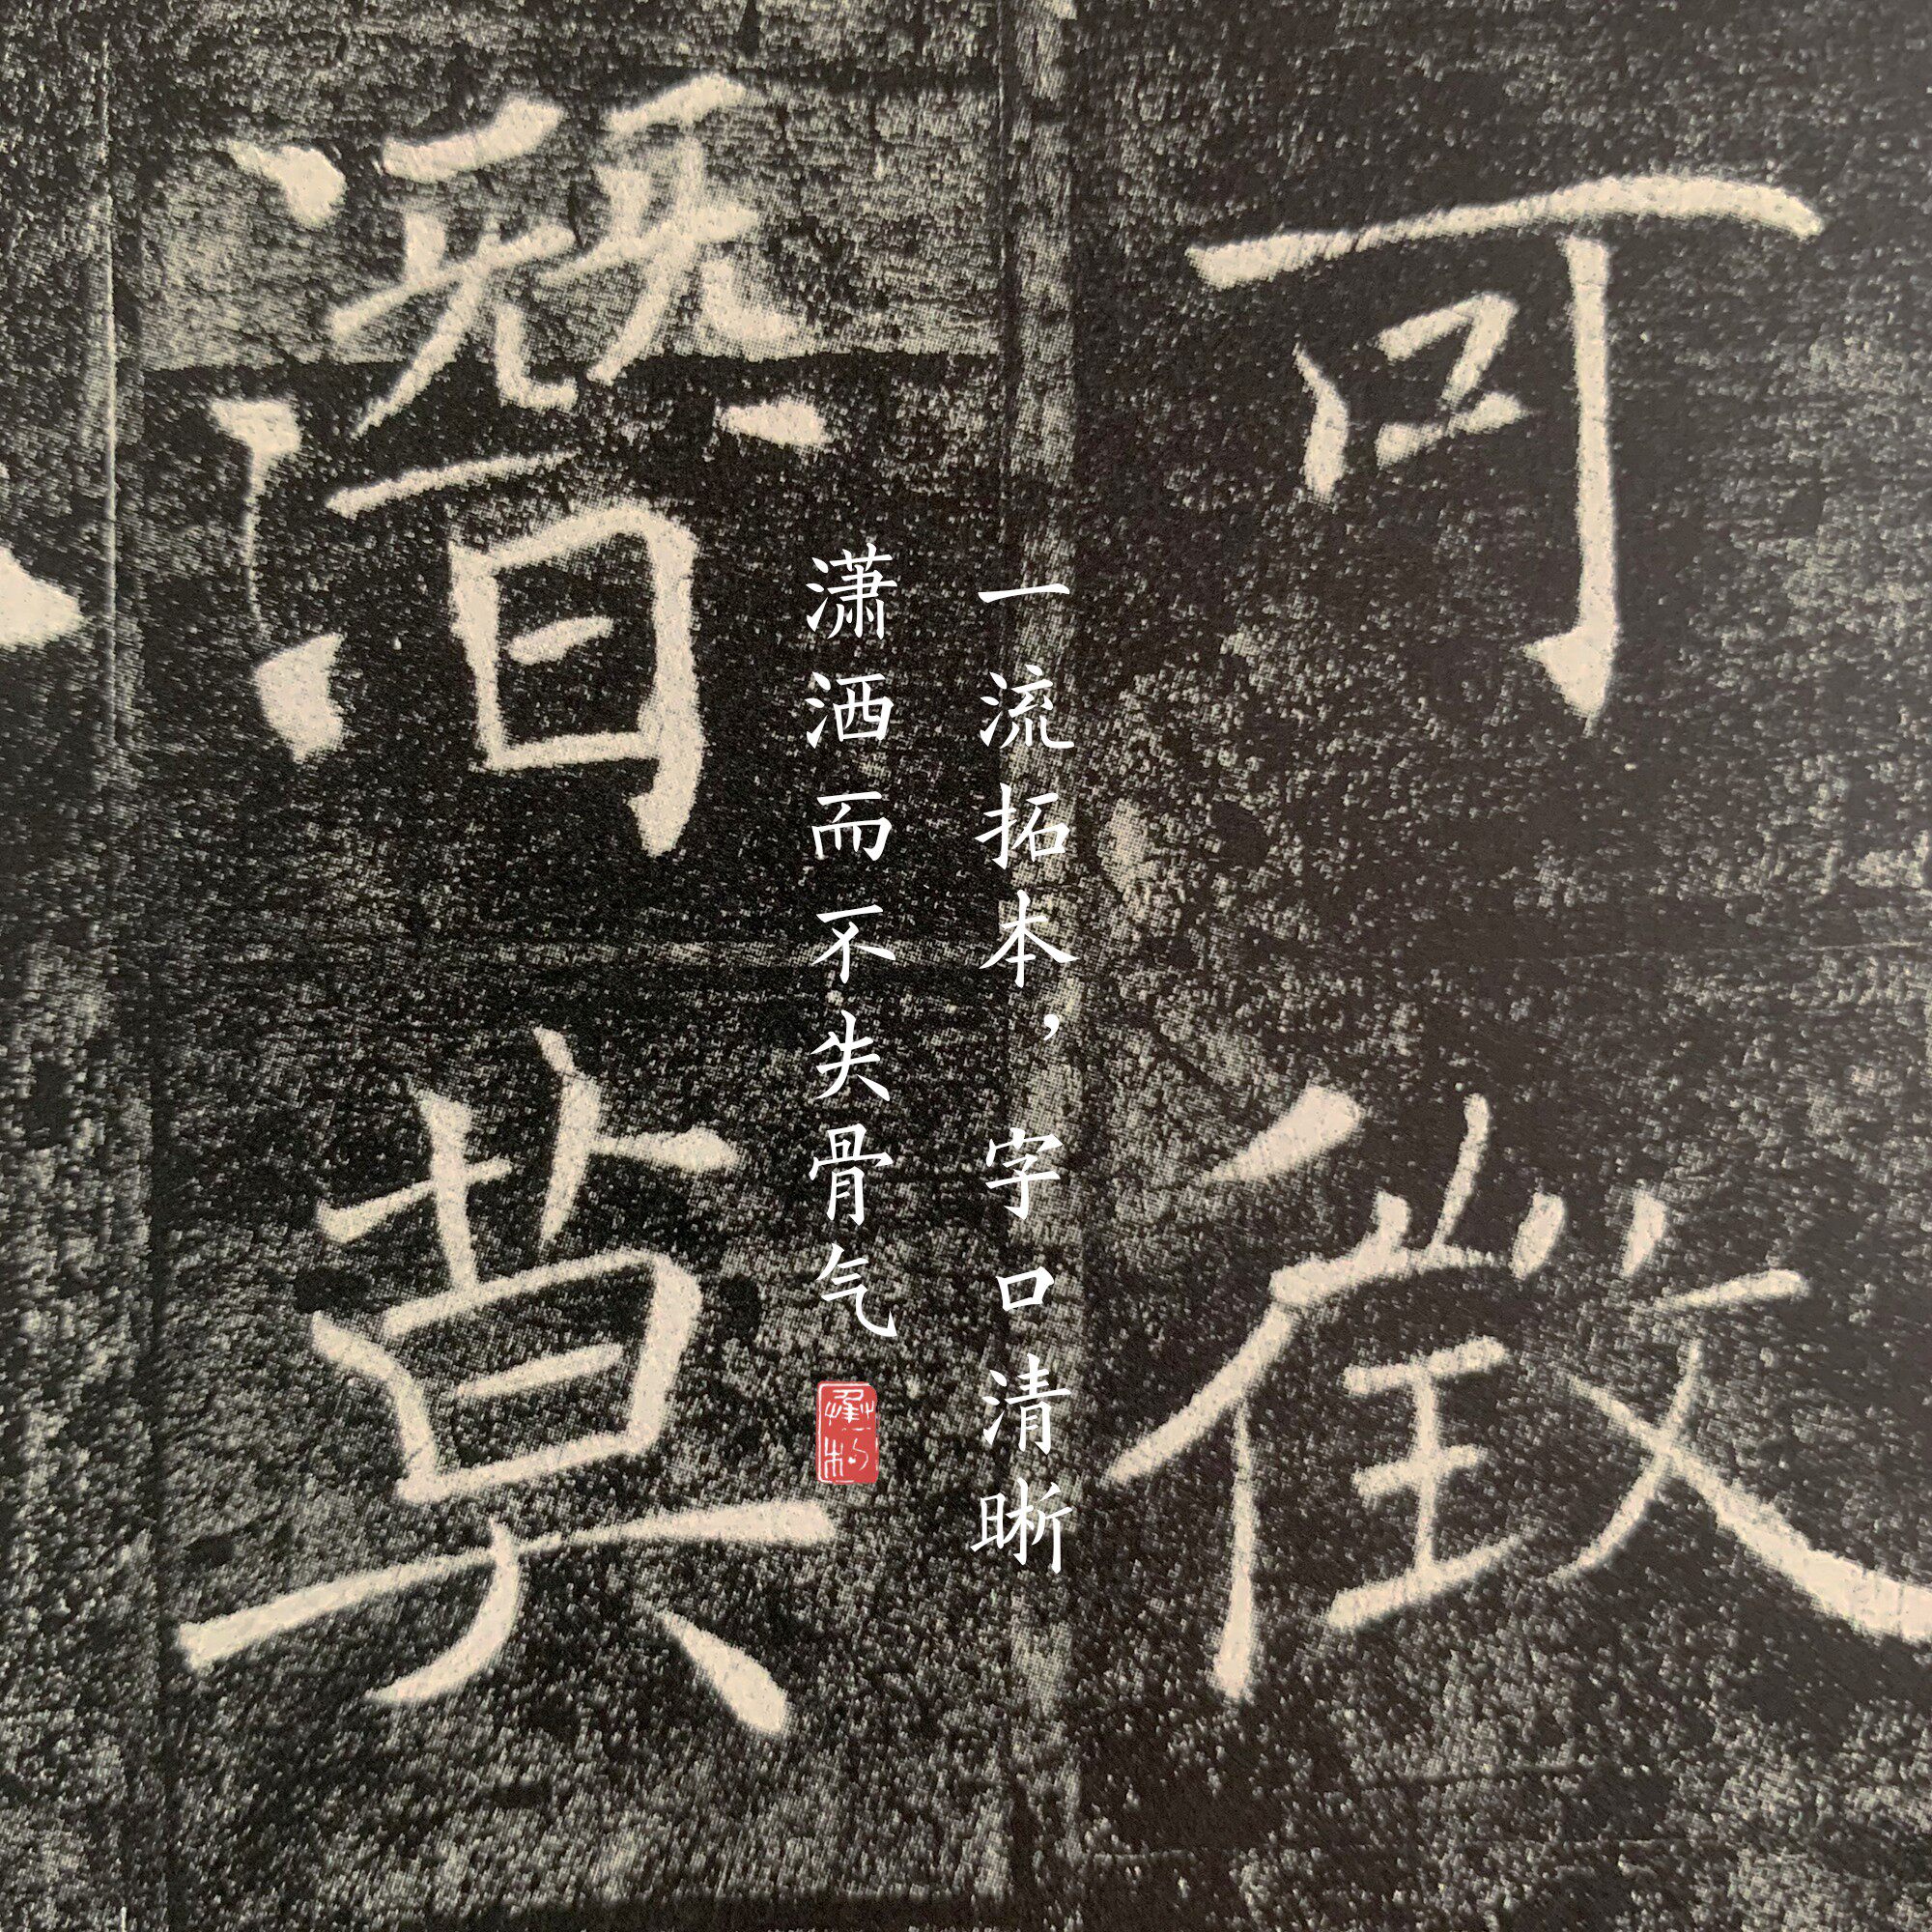 可徵
一流拓本，字口清晰
潇洒而不失骨气
潛莫